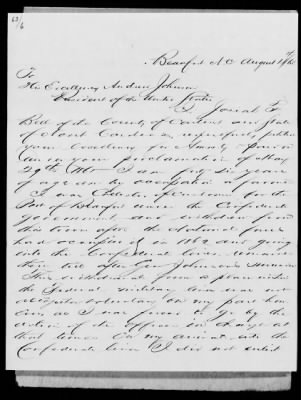 Beaufort N C August
To
His Excellency Andrew Johnson
President of the United States
I Josiah F
Bell of the County of Carteret and State
of North Carolina, respectfully petition
your Excellency for Amnesty &
under your proclamation of May
29th I am forty six years
of age and by occupation a farmer
I was Collector of Customs for the
Port of Beaufort under the Confederate
government, and withdrew from
this town after the National forces
had occupied it in 1862 and going
into the Confederate lines remained
there till after Gen Johnston's surrender
This withdrawal from a place within
the Federal military lines was not
voluntary on my part
as I was forced to go by the
action of the officer in charge at
that time. On my arrival into the
Confederate lines I did not enlist